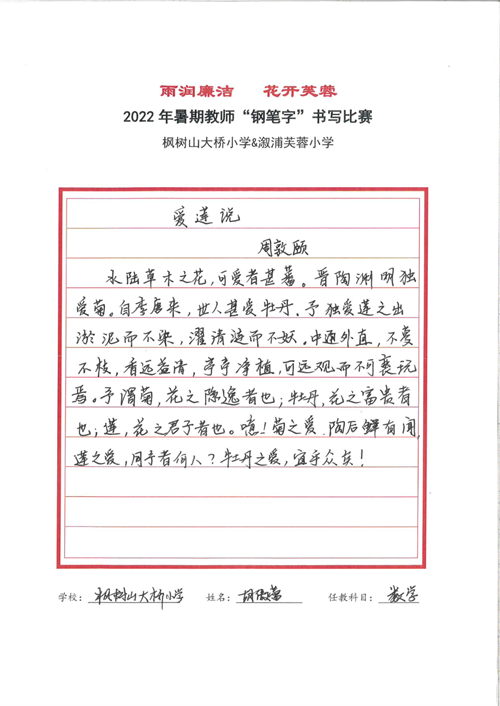 雨润廉洁 花开芙蓉
2022年暑期教师“钢笔字”书写比赛
枫树山大桥小学&溆浦芙蓉小学
爱莲说
周敦颐
水陆草木之花,可爱者甚蕃。晋陶渊明独
爱菊。自李唐来,世人甚爱牡丹.予独爱莲之出
淤泥而不染,濯清涟而不妖。中通外直,不蔓
不枝,香远益清,亭亭净植,可远观而不可亵玩
焉。予谓菊,花之隐逸者也;牡丹,花之富贵者
也;莲,花之君子者也。噫!菊之爱.陶后鲜有闻.
莲之爱,同予者何人?牡丹之爱,宜乎众矣!
学校:枫树山大桥小学 姓名:胡 任教科目:数学